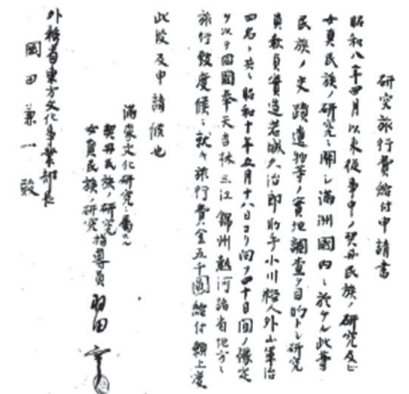 研究旅行費給付申請書
昭和八年四月以来従事中ノ契丹民族ノ研究及ビ
女真民族ノ研究ニ関シ満洲國内ニ於ケル此等
民族ノ史蹟遺物等ノ実地調査ヲ目的トシ研究
員教員実造若城久治郎助手小川裕人外山軍治
四名ト共ニ昭和十年五月十八日ヨリ向フ四十日間ノ豫定
ヲ以テ同國奉天吉林三江錦州熱河諸省地方ニ
旅行致度候ニ就キ旅行費金五千圓給付願上度
此段及申請候也
満蒙文化研究ニ属スル
契丹民族ノ研究
女真民族ノ研究 指導員 羽田亨
外務省東方文化事業部長
岡田兼一殿